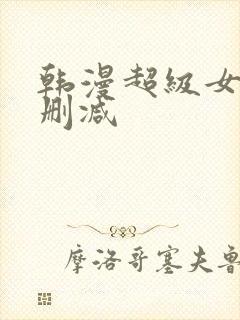 韩漫超级女
删减
摩洛哥塞夫鲁